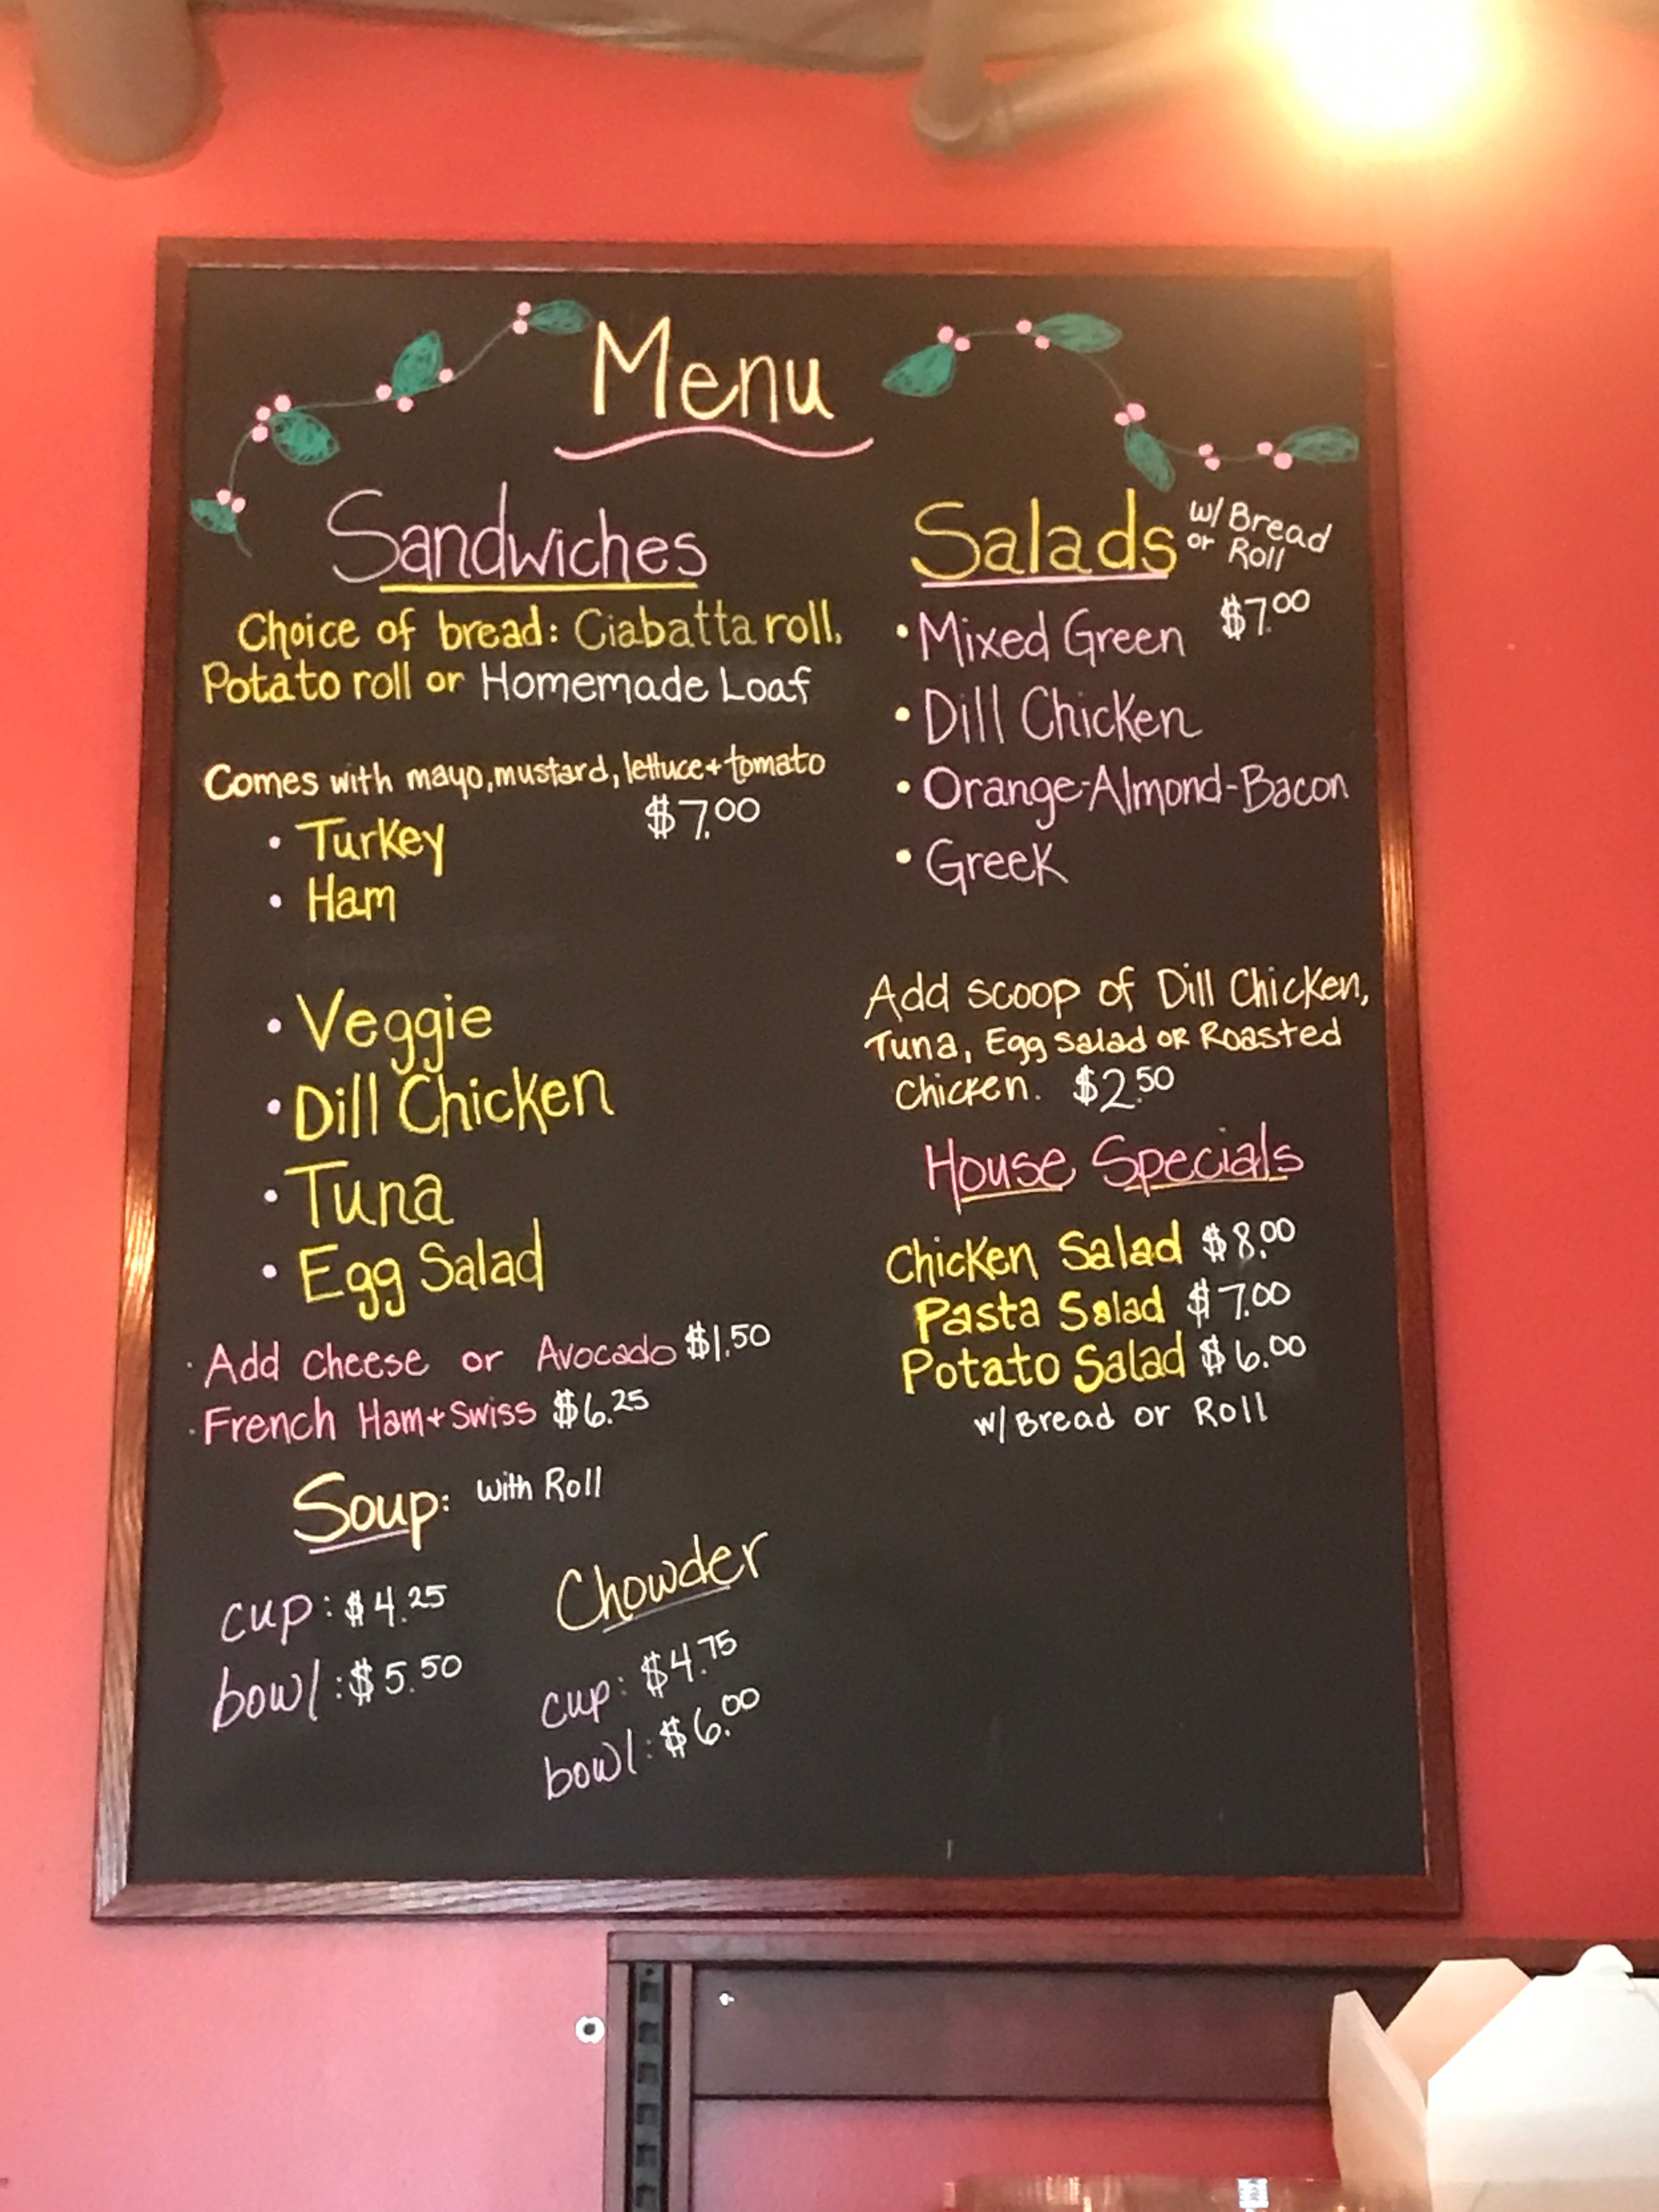 Menu
Sandwiches
Choice of bread: Ciabatta roll,
Potato roll or Homemade Loaf
Comes with mayo, mustard, lettuce + tomato
$7.00
• Turkey
• Ham
• Veggie
• Dill Chicken
• Tuna
• Egg Salad
· Add cheese or Avocado $1.50
· French Ham + Swiss $6.25
Soup: with Roll
cup: $4.25
bowl: $5.50
Chowder
cup: $4.75
bowl: $6.00
Salads w/ Bread
or Roll
• Mixed Green $7.00
• Dill Chicken
• Orange-Almond-Bacon
• Greek
Add scoop of Dill Chicken,
Tuna, Egg Salad or Roasted
Chicken. $2.50
House Specials
Chicken Salad $8.00
Pasta Salad $7.00
Potato Salad $6.00
w/ Bread or Roll